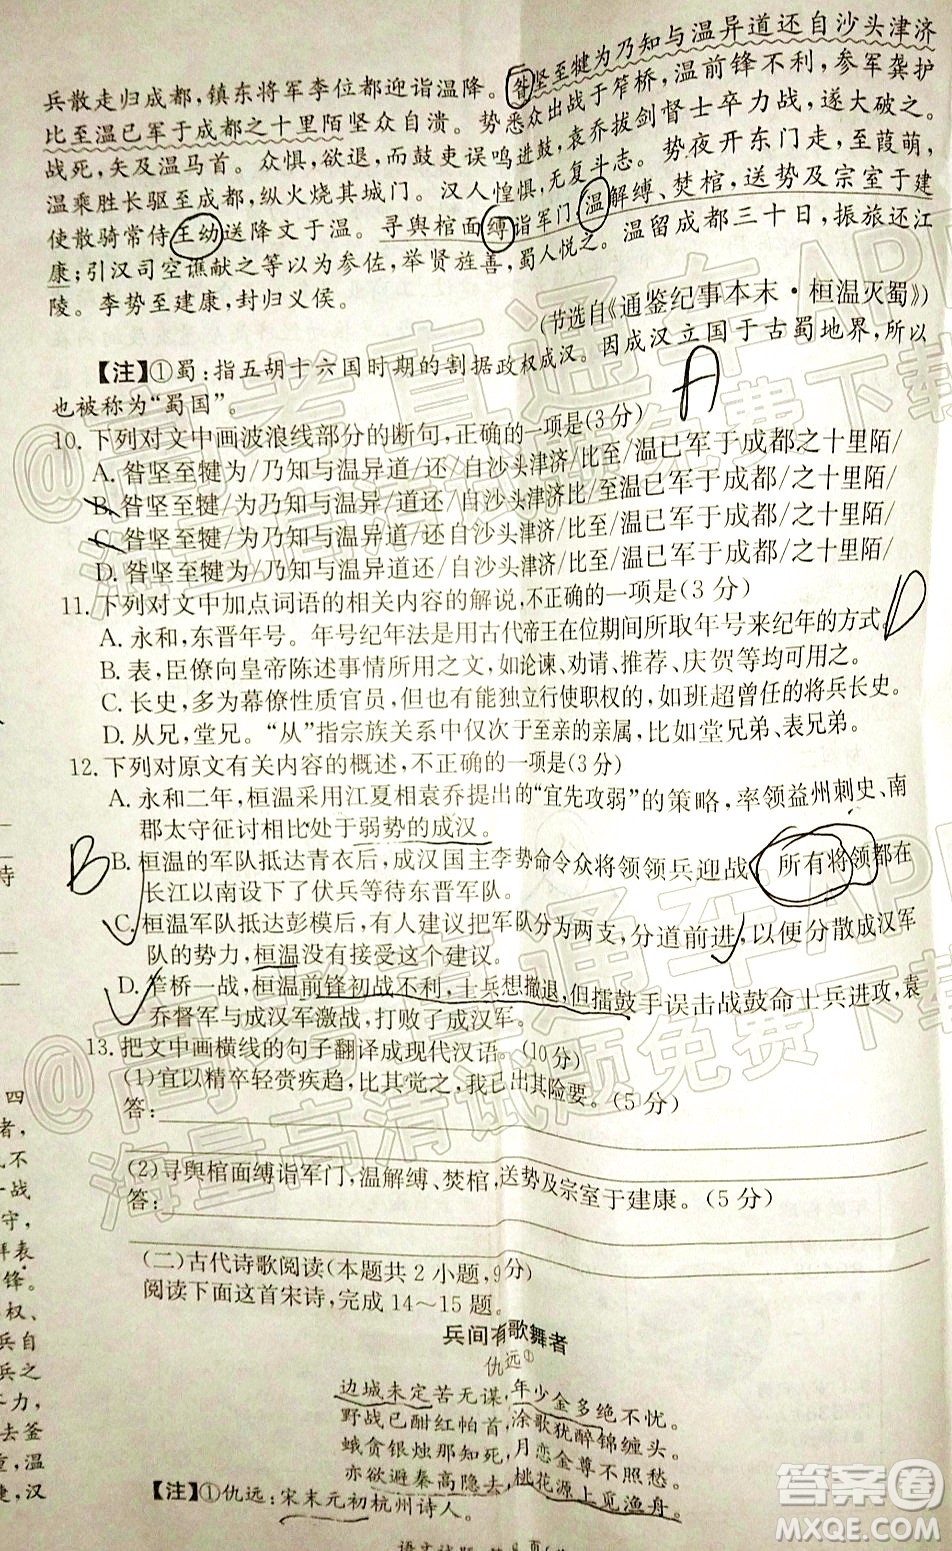 昝坚至犍为乃知与温异道还自沙头津济
兵散走归成都,镇东将军李位都迎诣温降。
比至温已军于成都之十里陌坚众自溃。势悉众出战于笮桥,温前锋不利,参军龚护
战死,矢及温马首。众惧,欲退,而鼓吏误鸣进鼓,袁乔拔剑督士卒力战,遂大破之。
温乘胜长驱至成都,纵火烧其城门。汉人惶惧,无复斗志。势夜开东门走,至葭萌,
使散骑常侍王幼送降文于温。寻舆榇面缚诣军门,温解缚、焚榇,送势及宗室于建
康;引汉司空谯献之等以为参佐,举贤旌善,蜀人悦之。温留成都三十日,振旅还江
陵。李势至建康,封归义侯。
(节选自《通鉴纪事本末·桓温灭蜀》)
【注】①蜀:指五胡十六国时期的割据政权成汉。因成汉立国于古蜀地界,所以
也被称为“蜀国”。
A
10. 下列对文中画波浪线部分的断句,正确的一项是(3分)
A. 昝坚至犍为/乃知与温异道/还/自沙头津济/比至/温已军于成都/之十里陌/
B. 昝坚至犍/为乃知与温异/道还/自沙头津济比/至温已军于成都/之十里陌/
C. 昝坚至犍/为乃知与温异/道还/自沙头津济/比至/温已军/于成都/之十里陌/
D. 昝坚至犍为/乃知与温异道/还/自沙头津济/比至温已军于成都/之十里陌/
11. 下列对文中加点词语的相关内容的解说,不正确的一项是(3分)
D
A. 永和,东晋年号。年号纪年法是用古代帝王在位期间所取年号来纪年的方式。
B. 表,臣僚向皇帝陈述事情所用之文,如论谏、劝请、推荐、庆贺等均可用。
C. 长史,多为幕僚性质官员,但也有能独立行使职权的,如班超曾任的将兵长史。
D. 从兄,堂兄。“从”指宗族关系中仅次于至亲的亲属,比如堂兄弟、表兄弟。
12. 下列对原文有关内容的概述,不正确的一项是(3分)
A. 永和二年,桓温采用江夏相袁乔提出的“宜先攻弱”的策略,率领益州刺史、南
郡太守征讨相比处于弱势的成汉。
B
B. 桓温的军队抵达青衣后,成汉国主李势命令众将领领兵迎战,所有将领都在
长江以南设下了伏兵等待东晋军队。
C. 桓温军队抵达彭模后,有人建议把军队分为两支,分道前进,以便分散成汉军
队的势力,桓温没有接受这个建议。
D. 笮桥一战,桓温前锋初战不利,士兵想撤退,但擂鼓手误击战鼓命士兵进攻,袁
乔督军与成汉军激战,打败了成汉军。
13. 把文中画横线的句子翻译成现代汉语。(10分)
(1)宜以精卒轻赍疾趋,比其觉之,我已出其险要。(5分)
答:
(2)寻舆榇面缚诣军门,温解缚、焚榇,送势及宗室于建康。(5分)
答:
(二)古代诗歌阅读(本题共2小题,9分)
阅读下面这首宋诗,完成14~15题。
兵间有歌舞者
仇远①
边城未定苦无谋,年少金多绝不忧。
野战已酣红帕首,涂歌犹醉锦缠头。
蛾贪银烛那知死,月恋金尊不照愁。
亦欲避秦高隐去,桃花源上觅渔舟。
【注】①仇远:宋末元初杭州诗人。
四
者,
不
一战
守,
拜表
锋。
权、
车自
兵之
力,
去釜
重,温
建,汉
诗
答案圈
@高考直通车APP
海量高清试题免费下载